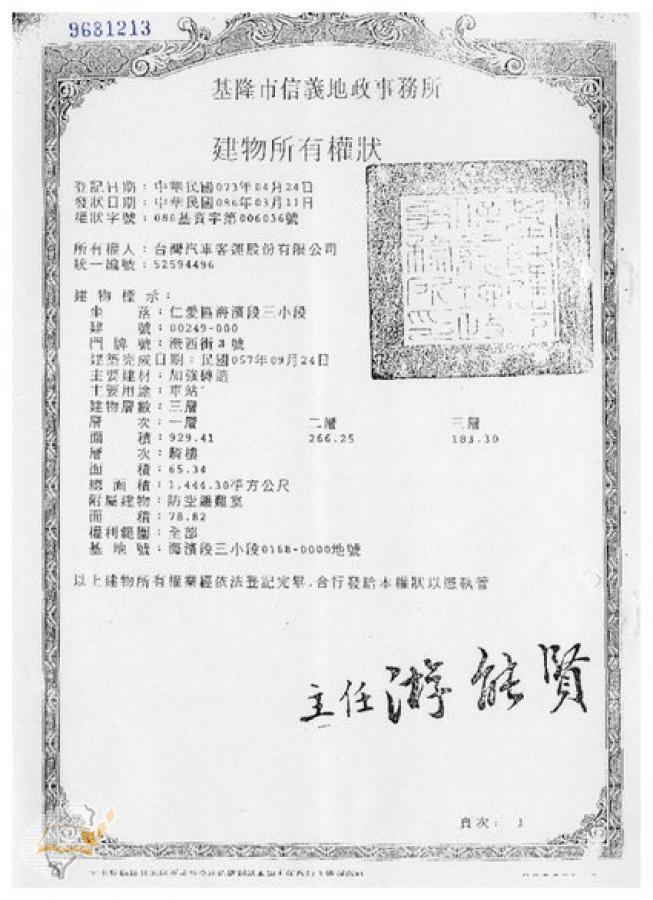 9681213
基隆市信義地政事務所
建物所有權狀
登記日期：中華民國073年04月24日
發狀日期：中華民國086年03月11日
權狀字號：086基資字第006036號
所有權人：台灣汽車客運股份有限公司
統一編號：52594496
建物標示：
坐落：仁愛區海濱段三小段
建號：00249-000
門牌號：港西街3號
建築完成日期：民國057年09月24日
主要建材：加強磚造
主要用途：車站
建物層數：三層
層次：一層 二層 三層
面積：929.41 266.25 183.30
層次：騎樓
面積：65.34
總面積：1,444.30平方公尺
附屬建物：防空避難室
面積：78.82
權利範圍：全部
基地號：海濱段三小段0168-0000地號
以上建物所有權業經依法登記完畢，合行發給本權狀以憑執管
主任 游能賢
頁次：1